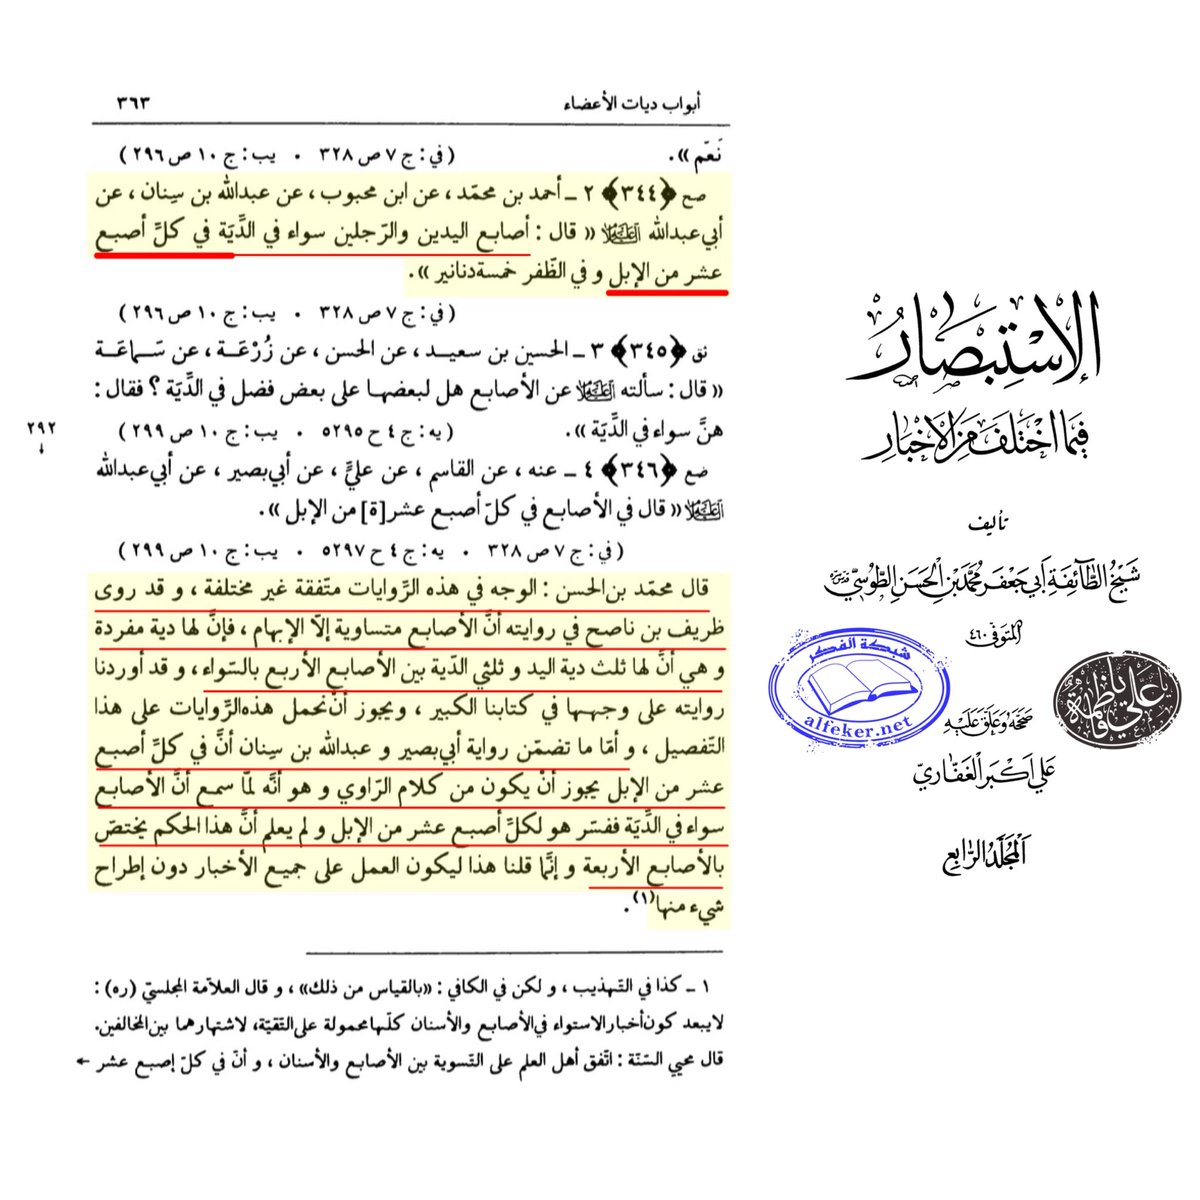 أبواب ديات الأعضاء ٣٦٣
نَعَم».
(في: ج ٧ ص ٣٢٨ • يب: ج ١٠ ص ٢٩٦)
صح ﴿٣٤٤﴾ ٢ ـ أحمد بن محمّد، عن ابن محبوب، عن عبدالله بن سِنان، عن
أبي عبدالله عليه السلام «قال: أصابع اليدين والرّجلين سواء في الدِّيَة في كلِّ أصبع
عشر من الإبل و في الظّفر خمسة دنانير».
(في: ج ٧ ص ٣٢٨ • يب: ج ١٠ ص ٢٩٦)
نق ﴿٣٤٥﴾ ٣ ـ الحسين بن سعيد، عن الحسن، عن زُرْعَة، عن سَماعَة
«قال: سألته عليه السلام عن الأصابع هل لبعضها على بعض فضل في الدِّيَة؟ فقال:
هنَّ سواء في الدِّيَة».
(يه: ج ٤ ح ٥٢٩٥ • يب: ج ١٠ ص ٢٩٩)
٢٩٢
↓
ضع ﴿٣٤٦﴾ ٤ ـ عنه، عن القاسم، عن عليٍّ، عن أبي بصير، عن أبي عبدالله
عليه السلام «قال في الأصابع في كلّ أصبع عشر[ة] من الإبل».
(في: ج ٧ ص ٣٢٨ • يه: ج ٤ ح ٥٢٩٧ • يب: ج ١٠ ص ٢٩٩)
قال محمّد بن الحسن: الوجه في هذه الرِّوايات متّفقة غير مختلفة، و قد روى
ظريف بن ناصح في روايته أنَّ الأصابع متساوية إلّا الإبهام، فإنَّ لها دية مفردة
و هي أنَّ لها ثلث دية اليد و ثلثي الدّية بين الأصابع الأربع بالسّواء، و قد أوردنا
روايته على وجهها في كتابنا الكبير، ويجوز أنْ نحمل هذه الرِّوايات على هذا
التّفصيل، و أمّا ما تضمّن رواية أبي بصير و عبدالله بن سِنان أنَّ في كلِّ أصبع
عشر من الإبل يجوز أنْ يكون من كلام الرّاوي و هو أنَّه لمّا سمع أنَّ الأصابع
سواء في الدِّيَة ففسّر هو لكلِّ أصبع عشر من الإبل و لم يعلم أنَّ هذا الحكم يختصّ
بالأصابع الأربعة و إنَّما قلنا هذا ليكون العمل على جميع الأخبار دون إطراح
شيء منها(١).
١ ـ كذا في التّهذيب، و لكن في الكافي: «بالقياس من ذلك»، و قال العلاّمة المجلسيّ (ره):
لايبعد كون أخبار الاستواء في الأصابع والأسنان كلّها محمولة على التّقيّة، لاشتهارهما بين المخالفين.
قال محيي السّنّة: اتّفق أهل العلم على التّسوية بين الأصابع والأسنان، و أنّ في كلّ إصبع عشر ←
الإِسْتِبْصَارُ
فِيمَا اخْتَلَفَ مِنَ الأَخْبَارِ
تأليف
شَيْخُ الطَّائِفَةِ أَبِي جَعْفَرٍ مُحَمَّدِ بْنِ الْحَسَنِ الطُّوسِيِّ
المتوفى ٤٦٠
شبكة الفكر
alfeker.net
صَحَّحَهُ وَعَلَّقَ عَلَيْهِ
عَلِي أَكْبَر الْغَفَّارِيّ
اَلْمُجَلَّدُ الرَّابِعُ